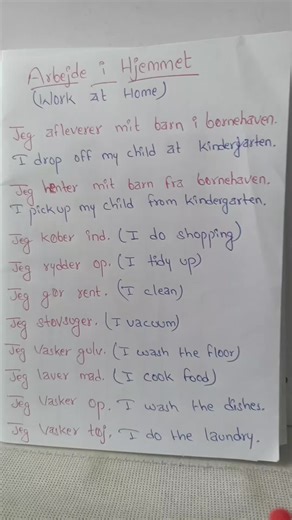 Arbejde i Hjemmet
(Work at Home)
Jeg afleverer mit barn i børnehaven.
I drop off my child at kindergarten.
Jeg henter mit barn fra børnehaven.
I pick up my child from kindergarten.
Jeg køber ind. (I do shopping)
Jeg rydder op. (I tidy up)
Jeg gør rent. (I clean)
Jeg støvsuger. (I vacuum)
Jeg vasker gulv. (I wash the floor)
Jeg laver mad. (I cook food)
Jeg vasker op. I wash the dishes.
Jeg vasker tøj. I do the laundry.